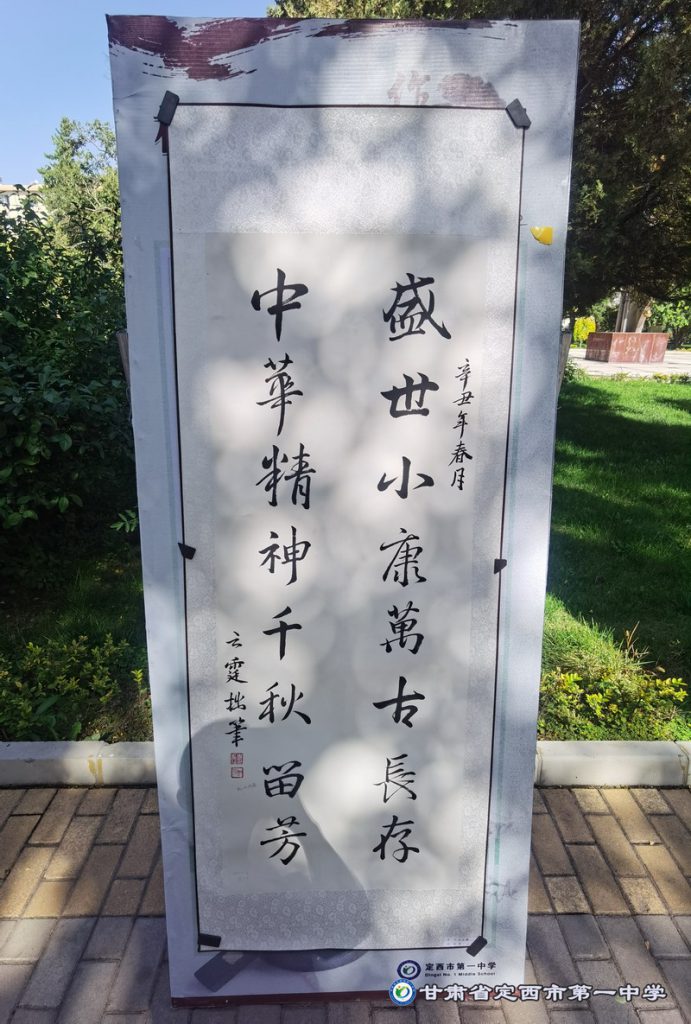 作
盛世小康萬古長存
辛丑年春月
中華精神千秋留芳
云霆拙筆
定西市第一中学
Dingxi No. 1 Middle School
甘肃省定西市第一中学